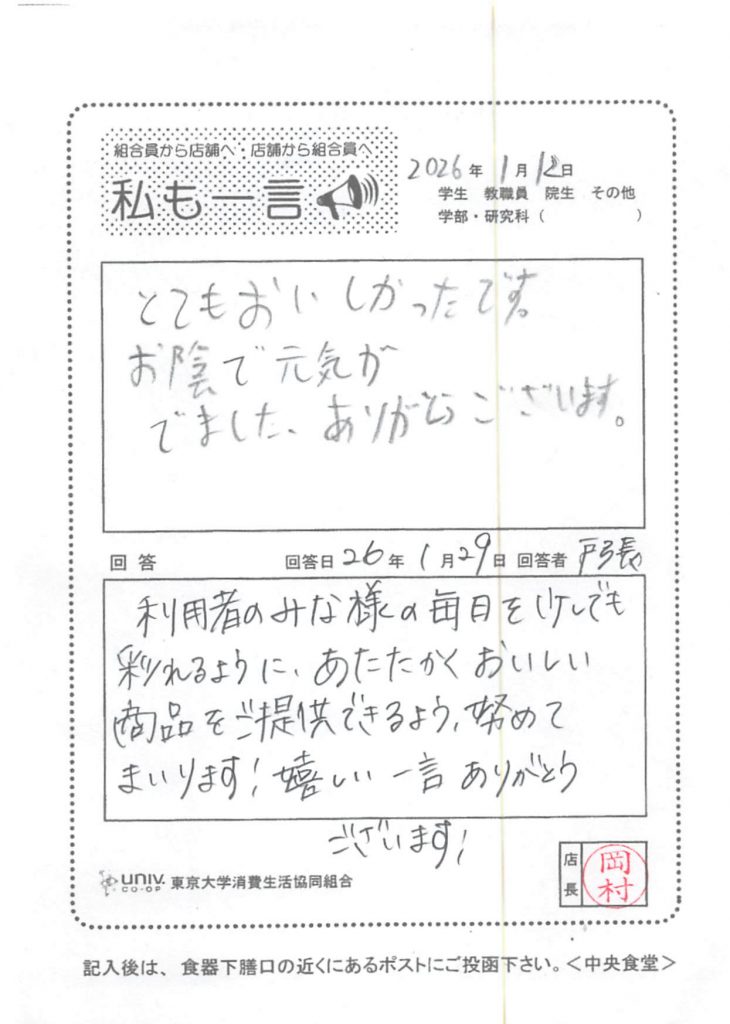 組合員から店舗へ・店舗から組合員へ
私も一言
2026年 1月12日
学生 教職員 院生 その他
学部・研究科（ ）
とてもおいしかったです。
お陰で元気が
でました、ありがとうございます。
回答 回答日26年1月29日 回答者 戸張
利用者のみな様の毎日を少しでも
彩れるように、あたたかくおいしい
商品をご提供できるよう、努めて
まいります！嬉しい一言ありがとう
ございます！
UNIV. CO-OP 東京大学消費生活協同組合
店長 岡村
記入後は、食器下膳口の近くにあるポストにご投函下さい。＜中央食堂＞